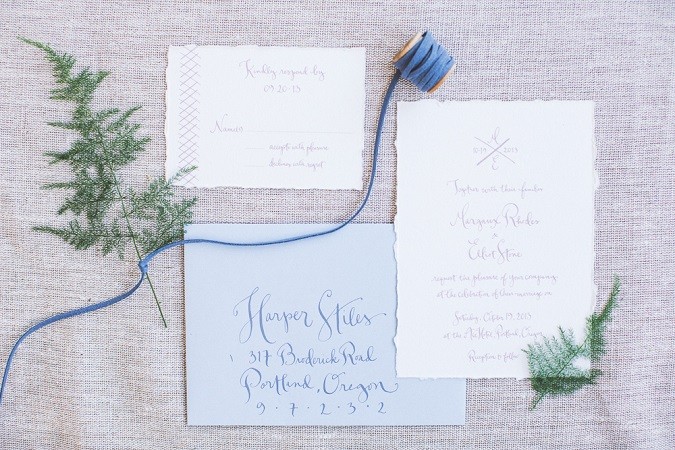 Kindly respond by
09·20·13
Names
accepts with pleasure
declines with regret
M
10/19 2013
E
Together with their families
Margaux Rhodes
Elliot Stone
request the pleasure of your company
at the celebration of their marriage on
Saturday, October 19, 2013
at the Portland, Oregon
Reception to follow
Harper Stiles
317 Broderick Road
Portland, Oregon
9·7·2·3·2